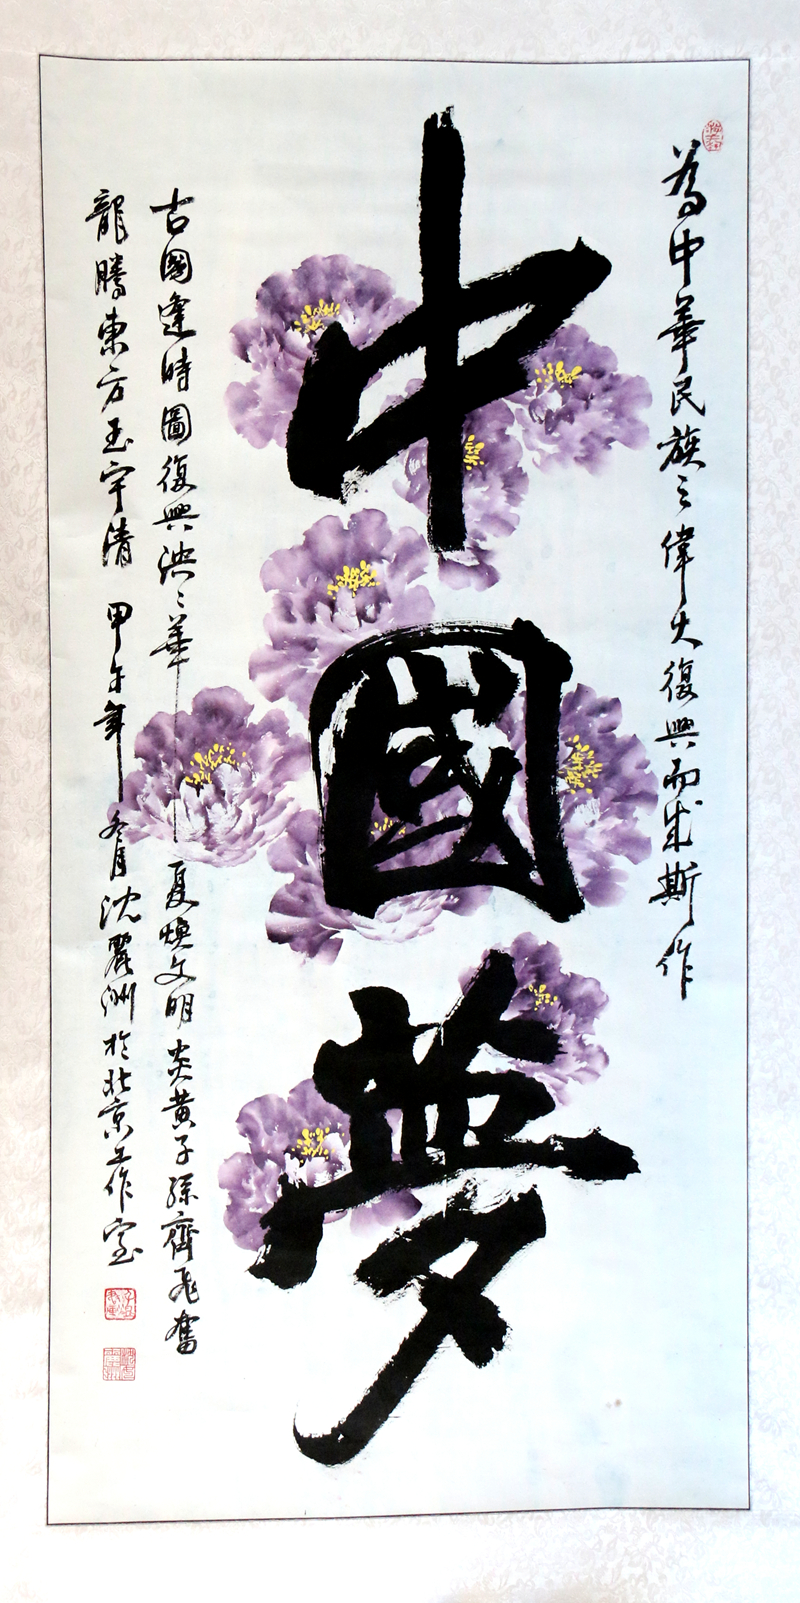 為中華民族之偉大復興而成斯作
中國夢
古國逢時圖復興泱々華夏煥文明炎黃子孫齊飛奮
龍騰東方玉宇清甲午年冬月沈麗洲於北京工作室